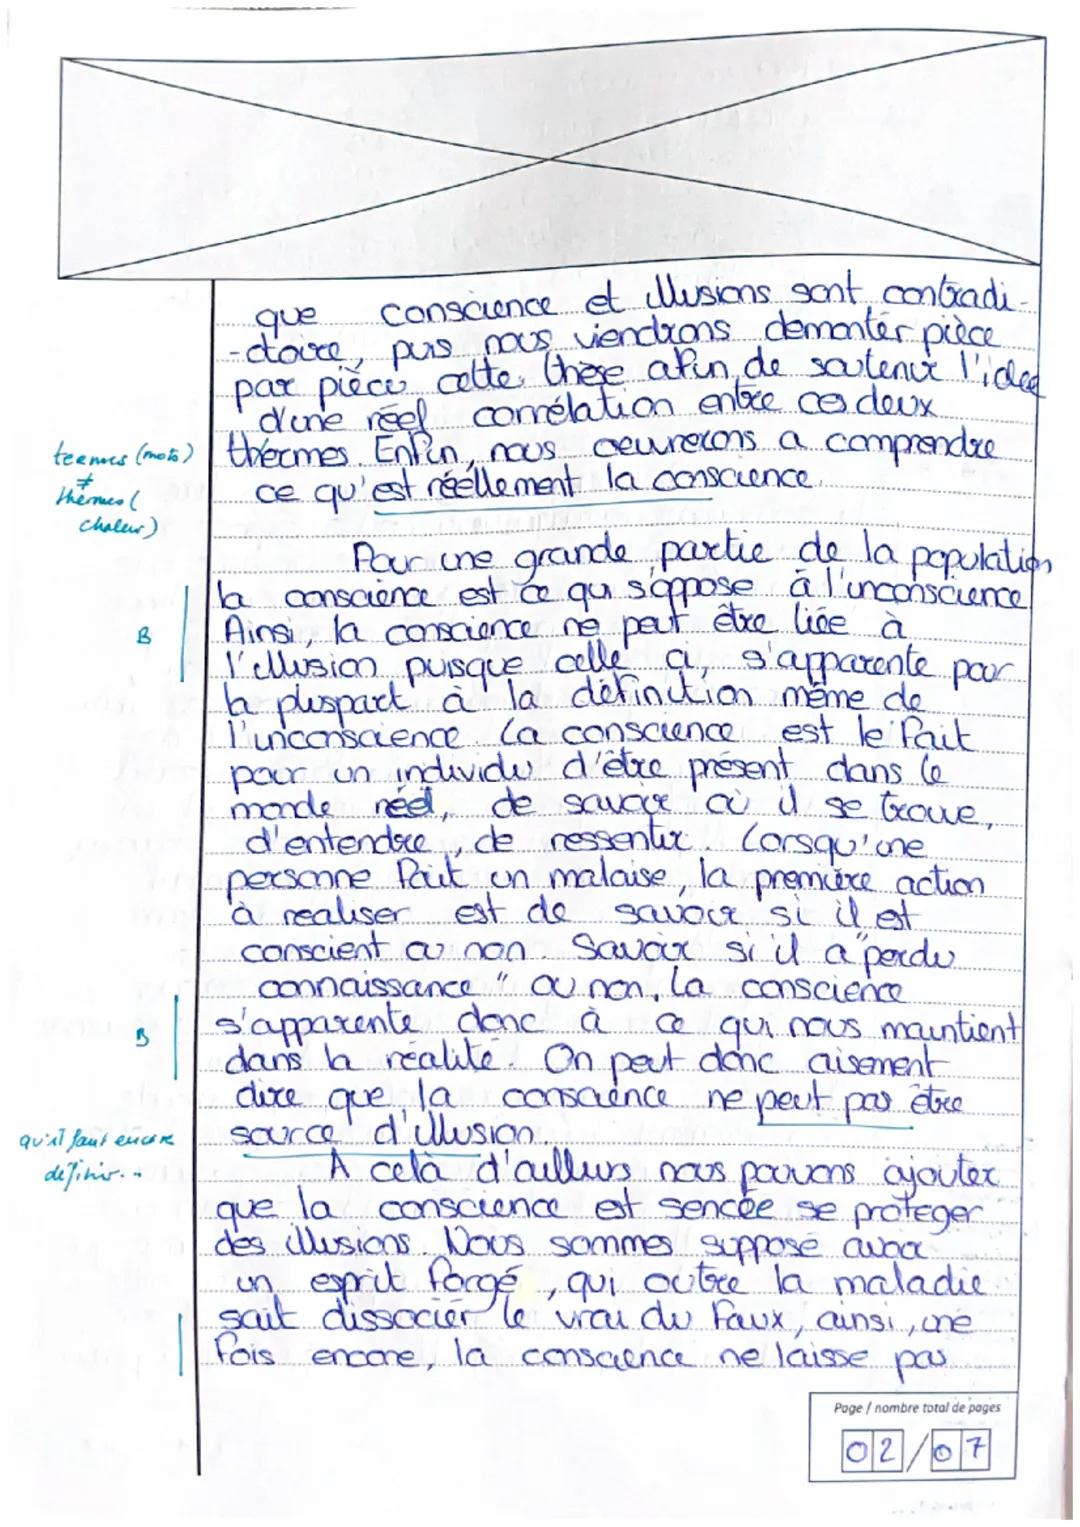 que conscience et illusions sont contradi-
-ctoire, puis nous viendrons démonter pièce
par pièce cette thèse afin de soutenir l'idée
d'une réel corrélation entre ces deux
termes (mots)
≠
thèrmes (
chaleur)
thérmes. Enfin, nous oeuvrerons a comprendre
ce qu'est réellement la conscience.
Pour une grande partie de la population
la conscience est ce qui s'oppose à l'inconscience
B
Ainsi, la conscience ne peut être liée à
l'illusion puisque celle ci, s'apparente pour
la pluspart à la définition même de
l'inconscience. La conscience est le fait
pour un individu d'être présent dans le
monde réel, de savoir où il se trouve,
d'entendre, de ressentir. Lorsqu'une
personne fait un malaise, la première action
à realiser est de savoir si il est
conscient ou non. Savoir si il a "perdu
connaissance" ou non. La conscience
B
s'apparente donc à ce qui nous maintient
dans la réalité. On peut donc aisement
dire que la conscience ne peut pas être
source d'illusion.
qu'il faut encore
définir...
A celà d'aileurs nous pouvons ajouter
que la conscience est sencée se proteger
des illusions. Nous sommes supposé avoir
un esprit forgé, qui outre la maladie
sait dissocier le vrai du faux, ainsi, une
fois encore, la conscience ne laisse pas
Page / nombre total de pages
02/07